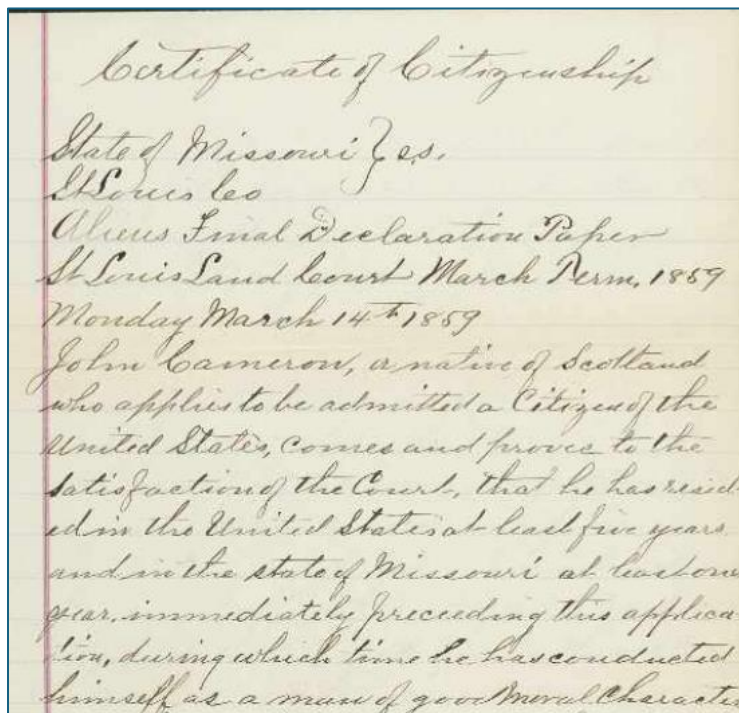 Certificate of Citizenship
State of Missouri } s.s.
St Louis Co
Aliens Final Declaration Paper
St Louis Land Court March Term, 1859
Monday March 14th 1859
John Cameron, a native of Scotland
who applies to be admitted a Citizen of the
United States, comes and proves to the
satisfaction of the Court, that he has resid-
ed in the United States at least five years
and in the state of Missouri at least one
year, immediately preceeding this applica-
tion, during which time he has conducted
himself as a man of good moral character